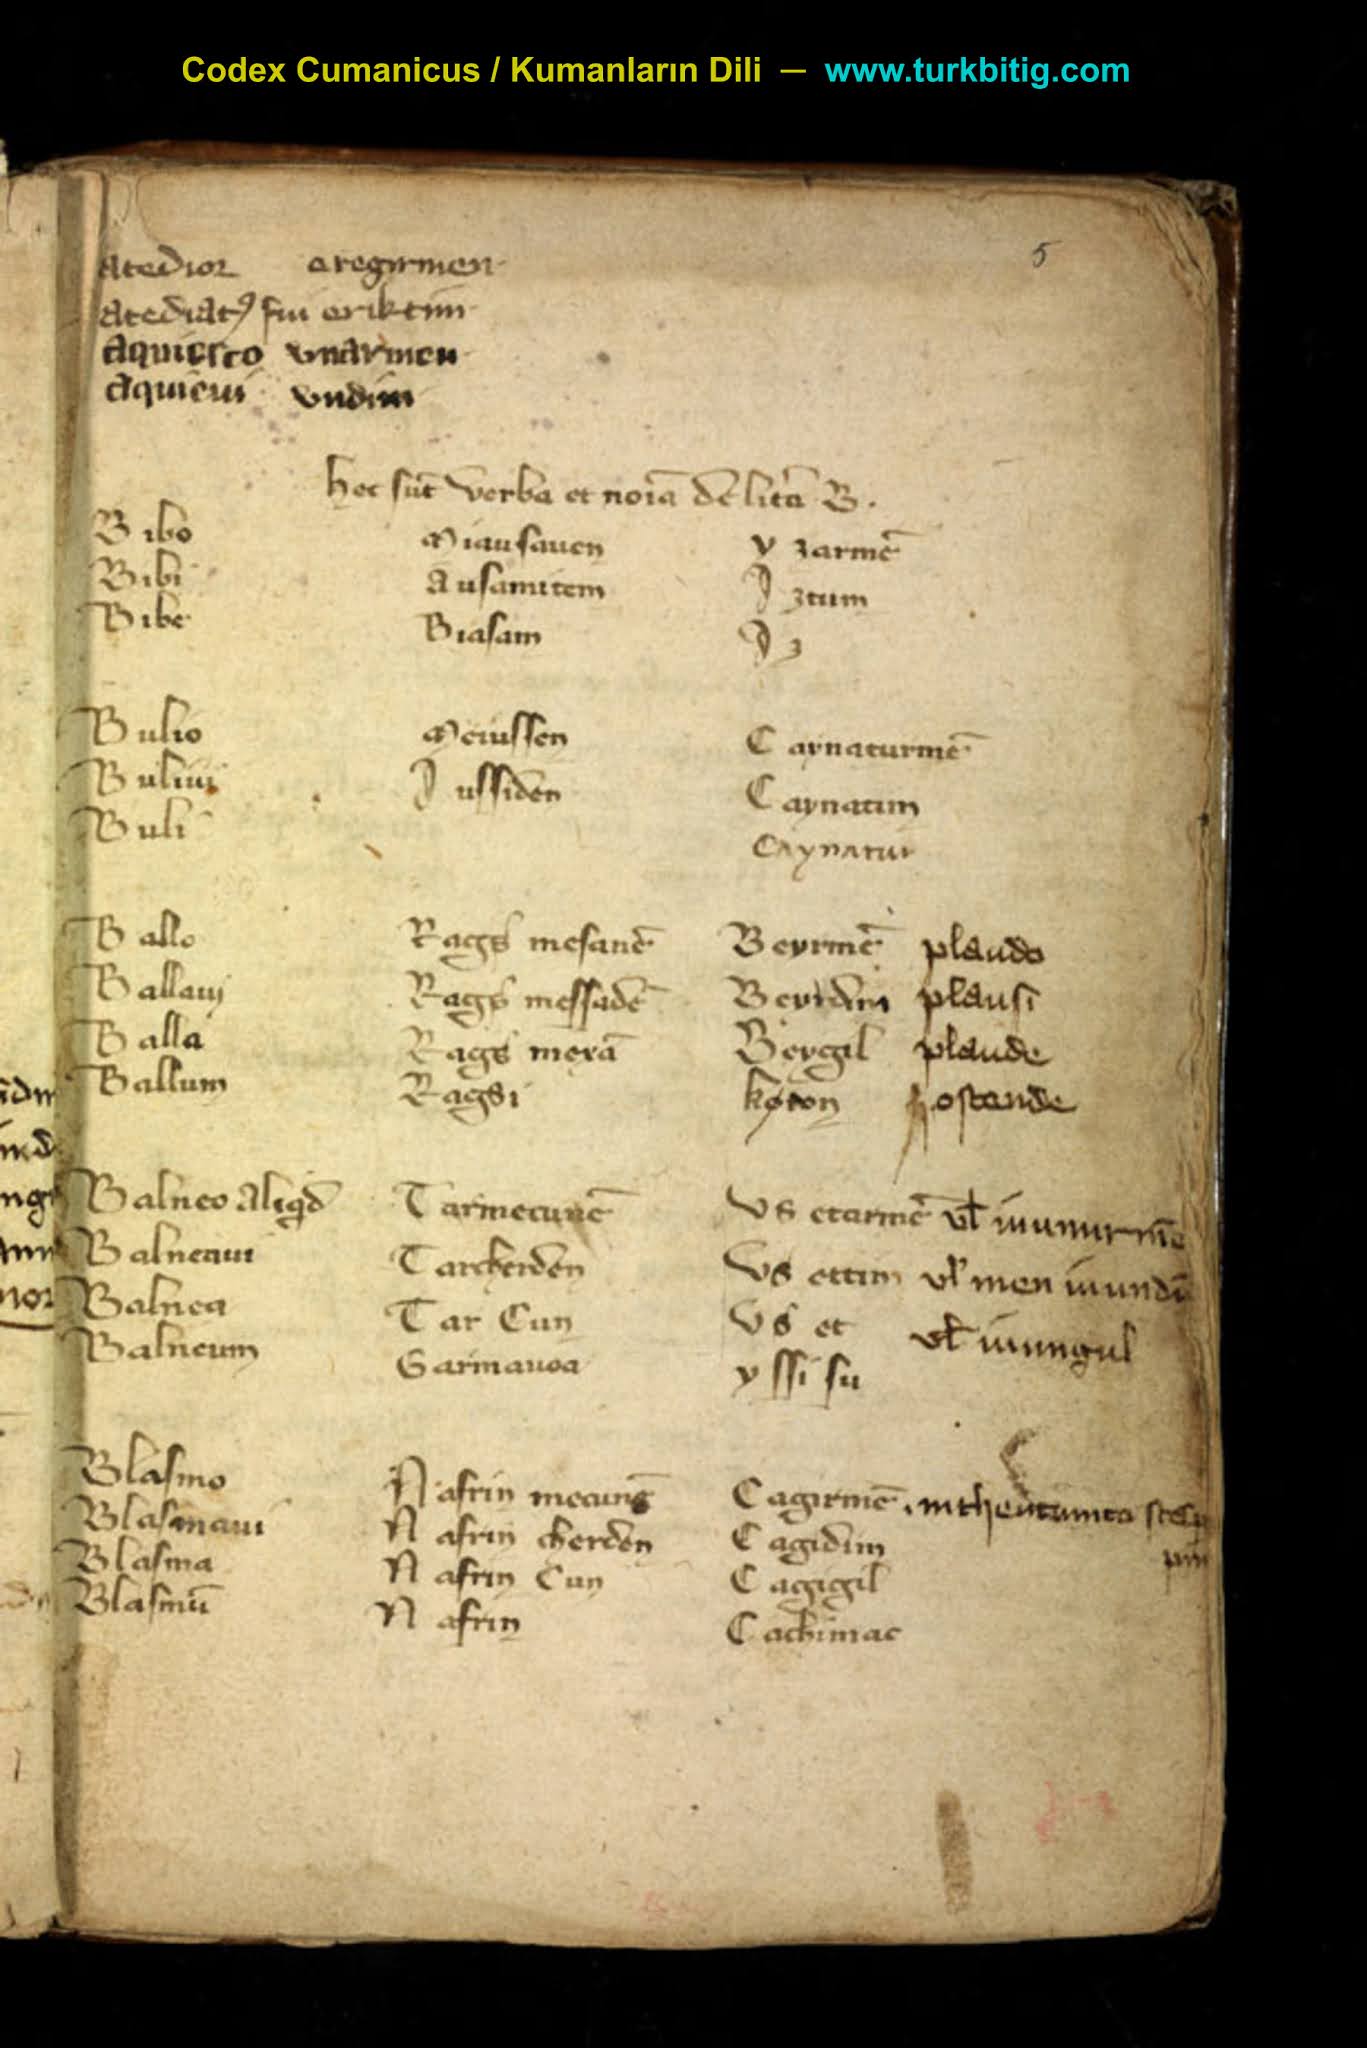 Codex Cumanicus / Kumanların Dili — www.turkbitig.com
5
atedior eregirmen
atediatꝰ fui eriktim
aquiesco vnarmen
aquieui vndim
hec sūt verba et noīa de litā B.
Bibo Miausauen yzarmē
Bibi Ausamitem Iztum
Bibe Biasam Iz
Bulio Meiussen Caynaturmē
Buliui Iussiden Caynatim
Buli Caynatur
Ballo Rags mesanē Beyrmē plaudo
Ballaui Rags messadē Beyrdim plausi
Balla Rags merā Beygil plaude
Ballum Ragsi ostende
Balneo aliqd Tarmecunē vs etarmē vl iuunurmē
Balneaui Tarcherden vs ettim vl men iuundū
Balnea Tar Cun vs et vl iuungul
Balneum Garmauoa yssi su
Blasmo Nafrin mecunē Cagirmē
Blasmaui Nafrin cherden Cagidim
Blasma Nafrin Cun Cagigil
Blasmū Nafrin Cachimac